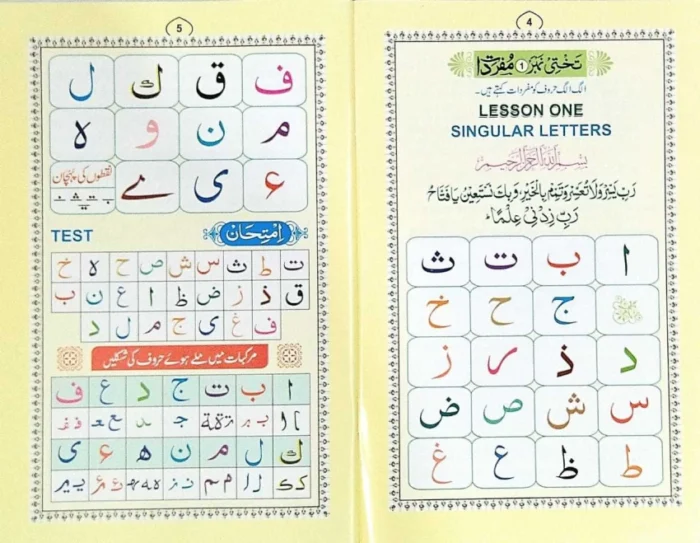 4
تختی نمبر ۱ مفردات
الگ الگ حروف کو مفردات کہتے ہیں۔
LESSON ONE
SINGULAR LETTERS
بِسْمِ اللهِ الرَّحْمٰنِ الرَّحِيْمِ
رَبِّ يَسِّرْ وَلَا تُعَسِّرْ وَتَمِّمْ بِالْخَيْرِ وَبِكَ نَسْتَعِيْنُ يَا فَتَّاحُ
رَبِّ زِدْنِيْ عِلْمًا
ا ب ت ث
ج ح خ
د ذ ر ز
س ش ص ض
ط ظ ع غ
5
ف ق ك ل
م ن و ه
ء ی ے نقطوں کی پہچان
TEST اِمْتِحَان
ت ط ث س ش ص ح ه خ
ق ذ ز ض ظ ا ع ن ب
ف غ ی ج م ل د
مرکبات میں ملے ہوئے حروف کی شکلیں
ا ب ت ج د ع ف
ك ل م ن ه ء ی